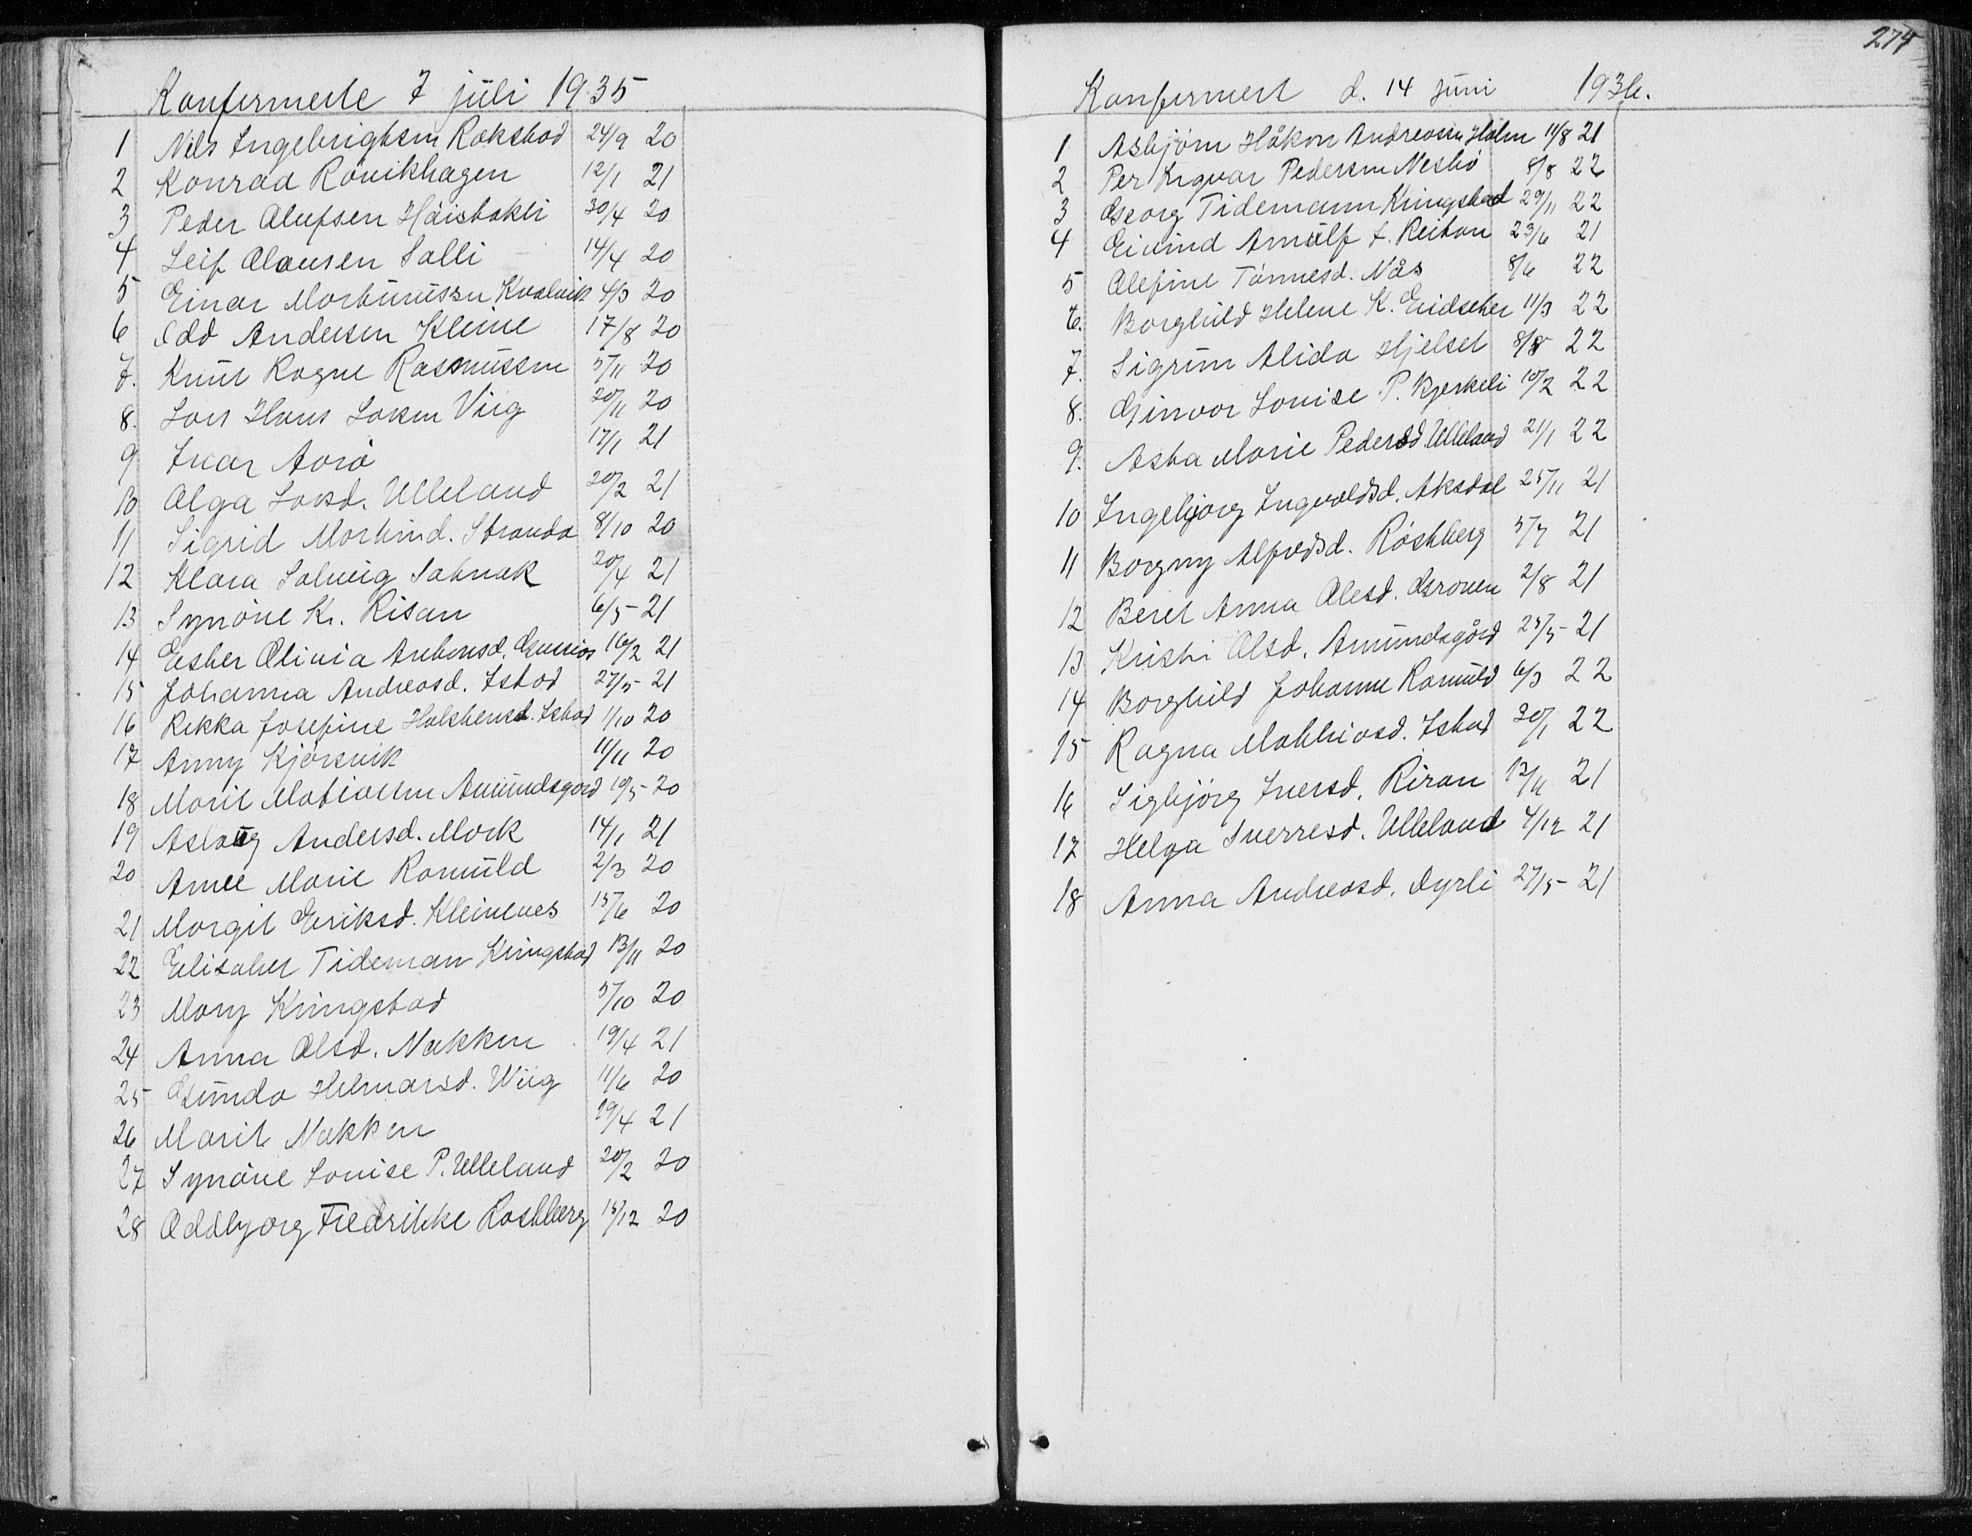 Konfermerte 7 juli 1935
1 Nils Ingebrigtsen Rakstad 24/9 20
2 Konrad Rönikhagen 12/1 21
3 Peder Olufsen Höistakli 30/4 20
4 Leif Olausen Salli 14/4 20
5 Einar Martinussen Kvalvik 4/3 20
6 Odd Andersen Kleive 17/8 20
7. Knut Ragne Rasmussen 5/11 20
8. Lars Hans Larsen Viig 20/11 20
9 Ivar Aarö 17/1 21
10 Olga Larsd. Ulleland 20/2 21
11 Sigrid Martind. Stranda 8/10 20
12 Klara Solveig Talsnak 20/4 21
13 Synöve Kr. Risan 6/5 - 21
14 Ester Olivia Antonsd. 16/2 21
15 Johanna Andreasd. Istad 27/5 21
16 Rikka Josefine Halstensd. Istad 1/10 20
17 Anny Kjörsvik 11/11 20
18 Marit Matiassen Amundsgård 19/5 - 20
19 Aslaug Andersd. Mork 14/1 21
20 Anne Marie Ramuld 2/3 20
21 Margit Eriksd. Kleivenes 15/6 20
22 Elisabet Tideman Kringstad 13/11 20
23 Mary Kringstad 5/10 20
24 Anna Olsd. Nakken 19/4 21
25 Gunda Hilmarsd. Wiig 11/6 20
26 Marit Nakken 29/4 21
27 Synöve Louise P. Ulleland 20/2 20
28 Oddbjorg Fredrikke Rostberg 15/12 20
274
Konfermert d. 14 Juni 1936.
1 Asbjörn Håkon Andreassen Holm 11/8 21
2 Per Ingvar Pedersen Nesbö 8/8 22
3 Georg Tidemann Kringstad 29/11 22
4 Eivind Arnulf L. Reitan 23/6 21
5 Olefine Tönnesd. Nås 8/6 22
6. Borghild Helene K. Eidseter 11/3 22
7. Sigrun Alida Hjelset 8/8 22
8. Ginvor Louise P. Bjerkeli 10/2 22
9. Asta Marie Pedersd Ulleland 21/1 22
10 Ingebjörg Ingvaldsd. Aksdal 25/11 21
11 Borgny Alfredsd. Röstberg 5/7 21
12 Beret Anna Olesd. Gröven 2/8 21
13 Kristi Olsd. Amundsgård 25/5 - 21
14 Borghild Johanne Ramuld 6/3 22
15 Ragna Mathiasd. Istad 30/1 22
16 Sigbjörg Iversd. Riran 12/11 21
17 Helga Sverresd. Ulleland 4/12 21
18 Anna Andreasd. Dyrli 27/5 - 21